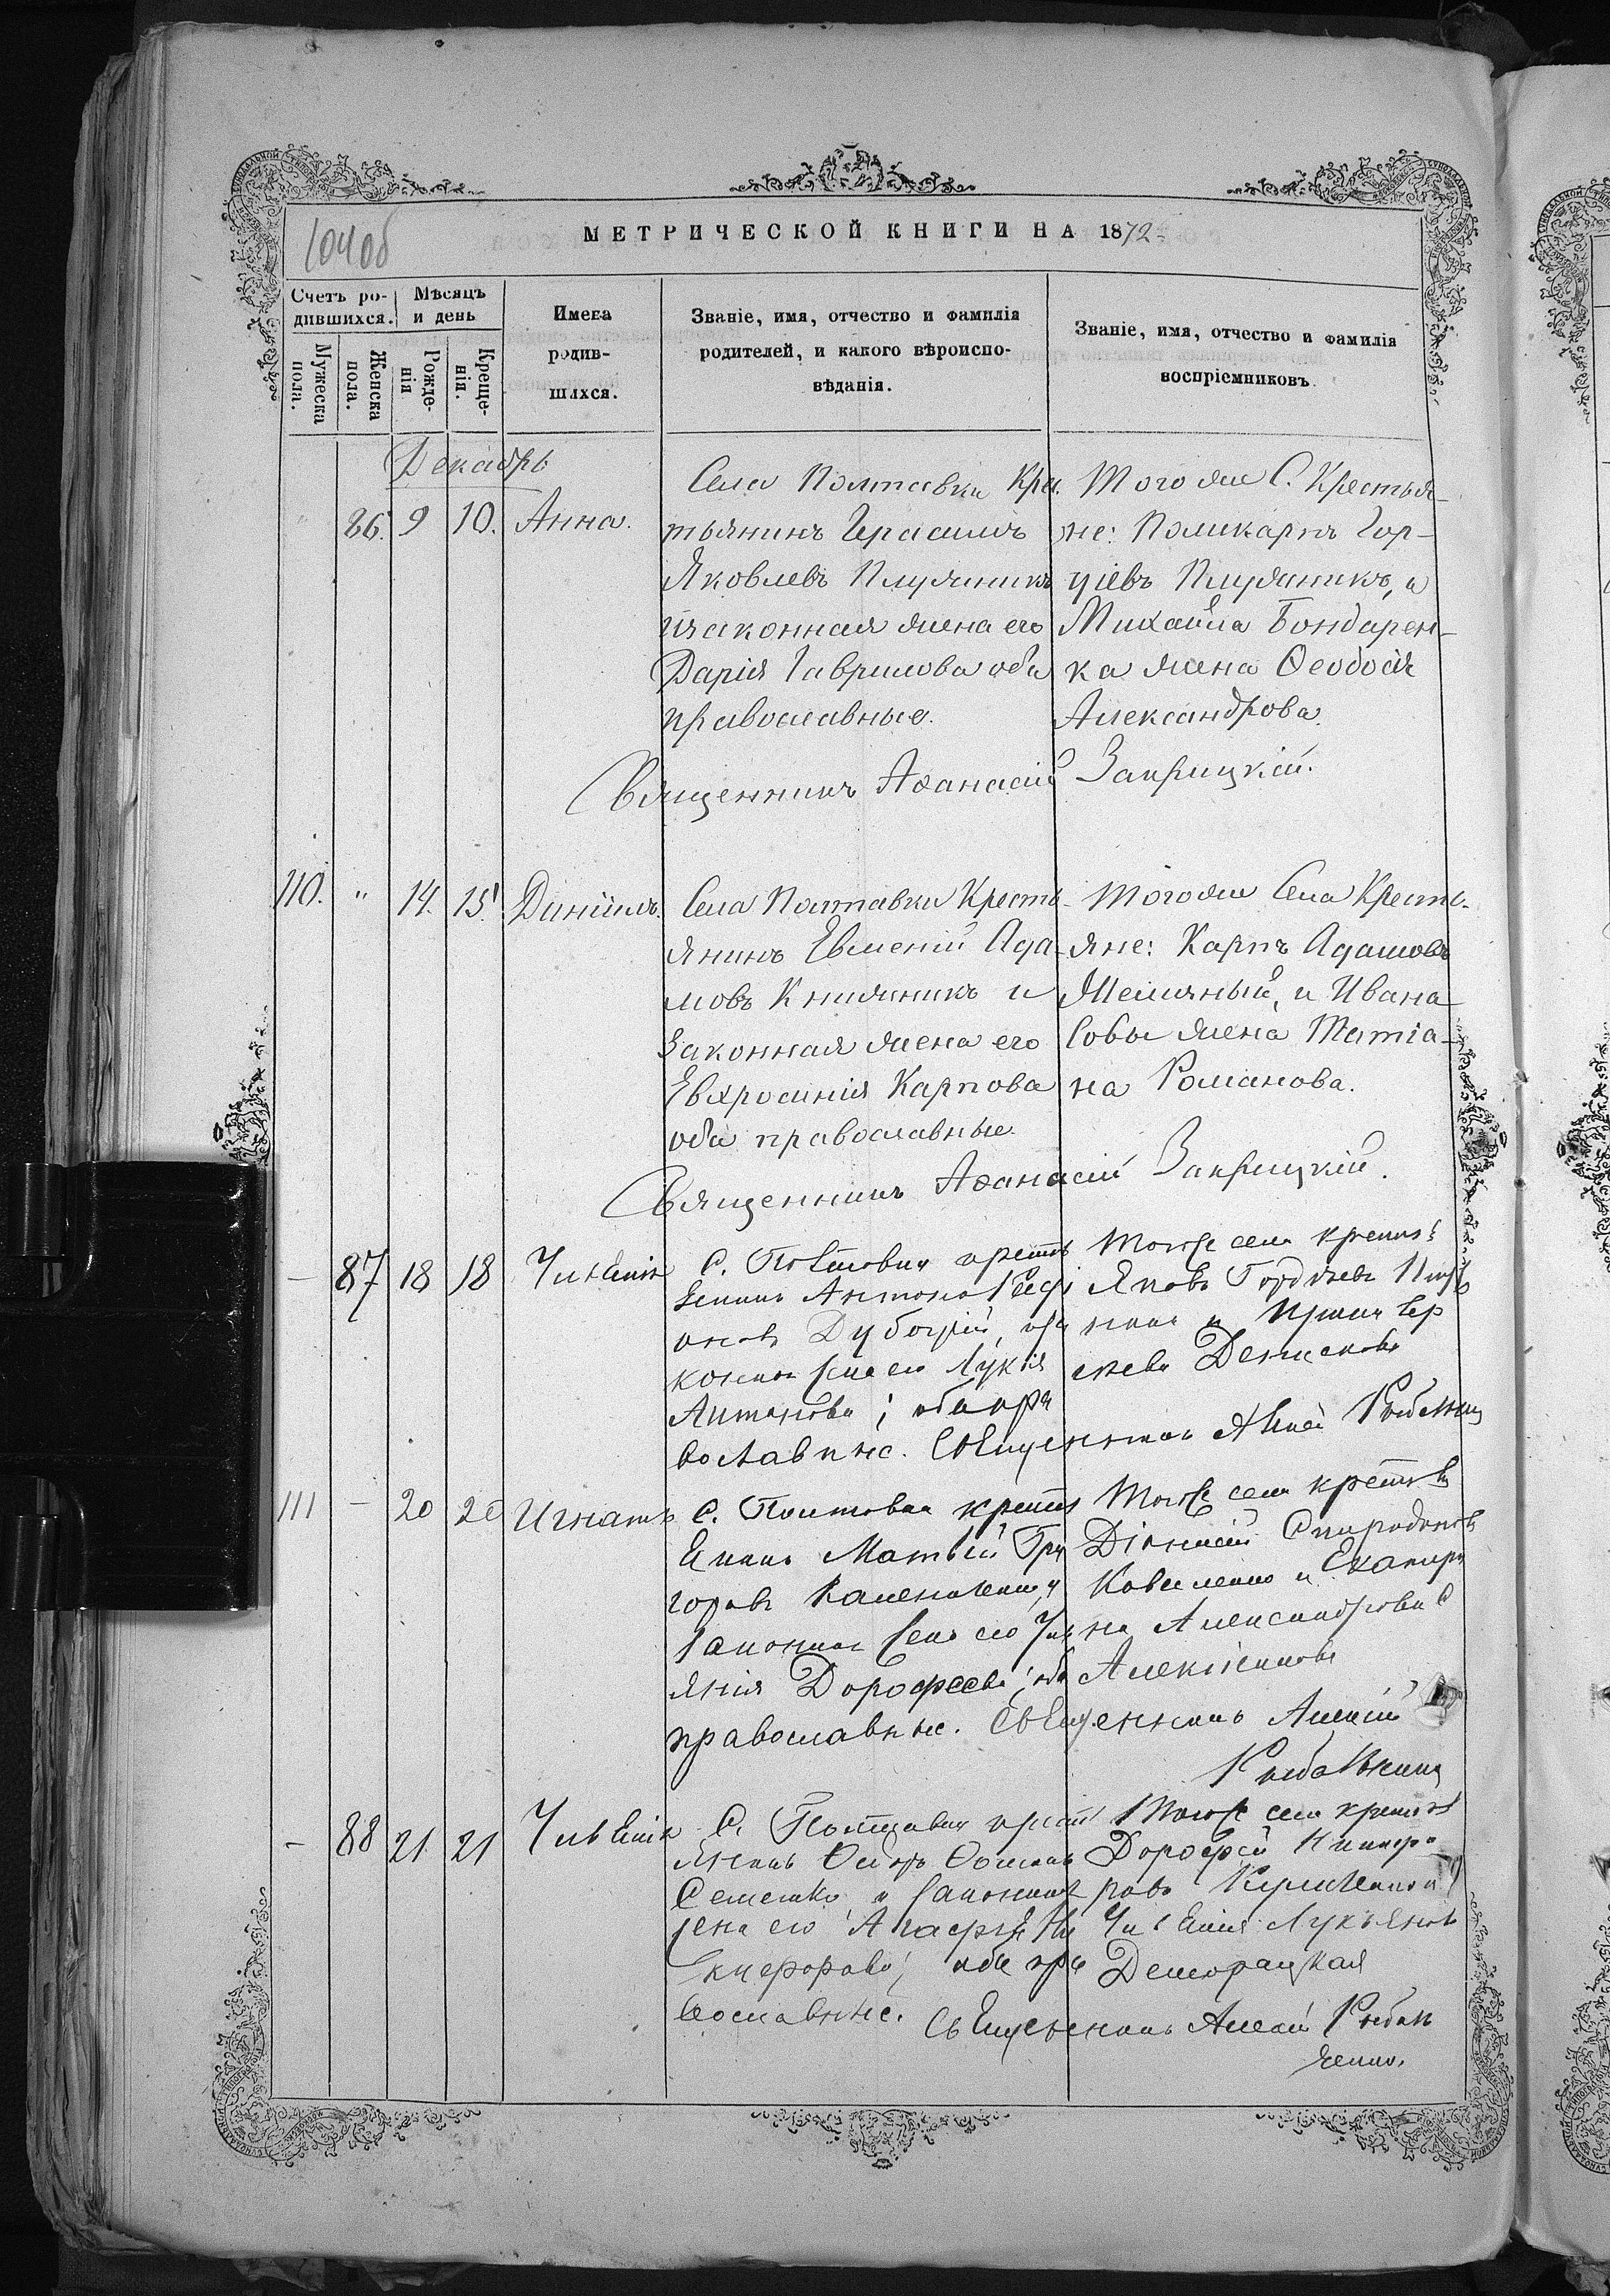 104об
МЕТРИЧЕСКОЙ КНИГИ НА 1872
Счетъ ро-
дившихся.
Мѣсяцъ
и день
Имена
родив-
шихся.
Званіе, имя, отчество и фамилія
родителей, и какого вѣроиспо-
вѣданія.
Званіе, имя, отчество и фамилія
воспріемниковъ.
Мужеска
пола.
Женска
пола.
Рожде-
нія
Креще-
нія.
Декабрь
86. 9 10. Анна.
Села Полтавки Крес-
тьянинъ Герасимъ
Яковлевъ Плужникъ
и законная жена его
Дарія Гаврилова оба
православные.
Того же С. Крестья-
не: Поликарпъ Гор-
діевъ Плужникъ, и
Михаила Бондарен-
ка жена Ѳеодосія
Александрова.
Священникъ Аѳанасій Закрицкій.
110. " 14. 15. Даніилъ.
Села Полтавки Кресть-
янинъ Евменій Ада-
мовъ Книжникъ и
Законная жена его
Евфросинія Карпова
оба православные
Того же Села Кресть-
яне: Карпъ Адамовъ
и Ивана
Совы жена Татіа-
на Романова.
Священникъ Аѳанасій Закрицкій.
— 87 18 18 Іуліанія
С. Полтавки крестъ
янинъ Антонъ
оновъ Дубогрій, и за
конная жена его Лукія
Антонова; оба пра
вославные.
Того же села крестья
Яковъ Гордіевъ Плуж
никъ и
Денисова
Священникъ Алексій Рыбальченко
111 — 20 20 Игнатъ
С. Полтавки крестья
янинъ Матвій Гри
горовъ и
законная жена его Іу
лянія Дорофеева; оба
православные.
Того же села крестьяне
Діонисій Спиридоновъ
Коваленко и Екатери
на Александрова
Священникъ Алексій
Рыбальченко
— 88 21 21 Іуліанія
С. Полтавки крест
янинъ Ѳедоръ Ѳоминъ
Семенко и законная
жена его Агафія Ни
кифорова; оба пра
вославные.
Того же села крестьяне
Дорофей Никифо
ровъ
Іуліанія Лукьянова
Священникъ Алексій Рыбаль
ченко.